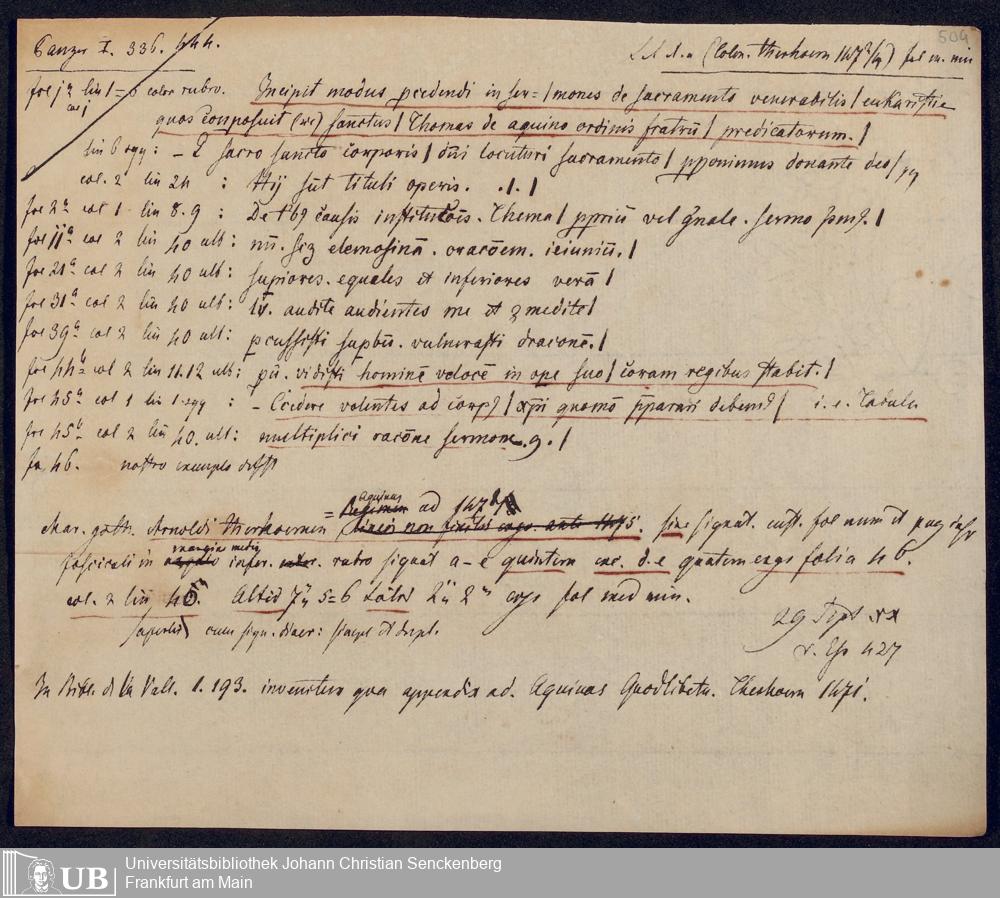 504
Panzer I. 336. 444.
L. l. A. a (Colon. therhoern 147 2/4) fol m. min
fol 1 a lin 1-6 color rubro. Incipit modus pcedendi in ser=/mones de sacramento venerabilis/ eukaristie
col 1 quos composuit (sic) sanctus/ Thomas de aquino ordinis fratrū/ predicatorum./
lin 6 sqq: – I sacro sancto corporis/ dn̄i locuturi sacramento/ pponimus donante deo/ pq
col. 2 lin 24 : Hij sūt tituli operis. .1./
fol 2a col 1 lin 8.9 : De t'bq causis institutōis. Thema/ pprium vel gnale. sermo pm9./
fol 11a col 2 lin 40 ult: nū. sez elemosinā. oracōem. ieiuniū./
fol 21a col 2 lin 40 ult: supiores. equales et inferiores verā/
fol 31a col 2 lin 40 ult: iv. audite audientes me et 9medite/
fol 39a col 2 lin 40 ult: pcussisti supbū. vulnerasti draconē./
fol 44b col 2 lin 11.12 ult: pū. vidisti hominē velocē in ope suo/ coram regibus stabit./
fol 45a col 1 lin 1 sqq : – Ccedere volentes ad corp9/ xpi quomō pparari debem9/ i.e. Tabula
fol 45b col 2 lin 40. ult: multiplici racōne sermone. 9./
fo 46. nostro exemplo deest
Aquinas
char. goth. Arnoldi therhoernen = ad 147 sine signat. cust. fol num et pag
fasciculi in margine medio infer. rubro signat a–e quintern exc. d.e quatern ergo folia 46.
col. 2 lin 40. Altid 7" 5-6 Latid 2" 2" ergo fol med min.
29 Sept xx
cum sign. diver: simpl et dupl.
v. Eg 427
In Bibl. d. la Vall. 1. 193. invenitur qua appendix ad. Aquinas Quodlibeta. Therhoern 1471.
UB
Universitätsbibliothek Johann Christian Senckenberg
Frankfurt am Main